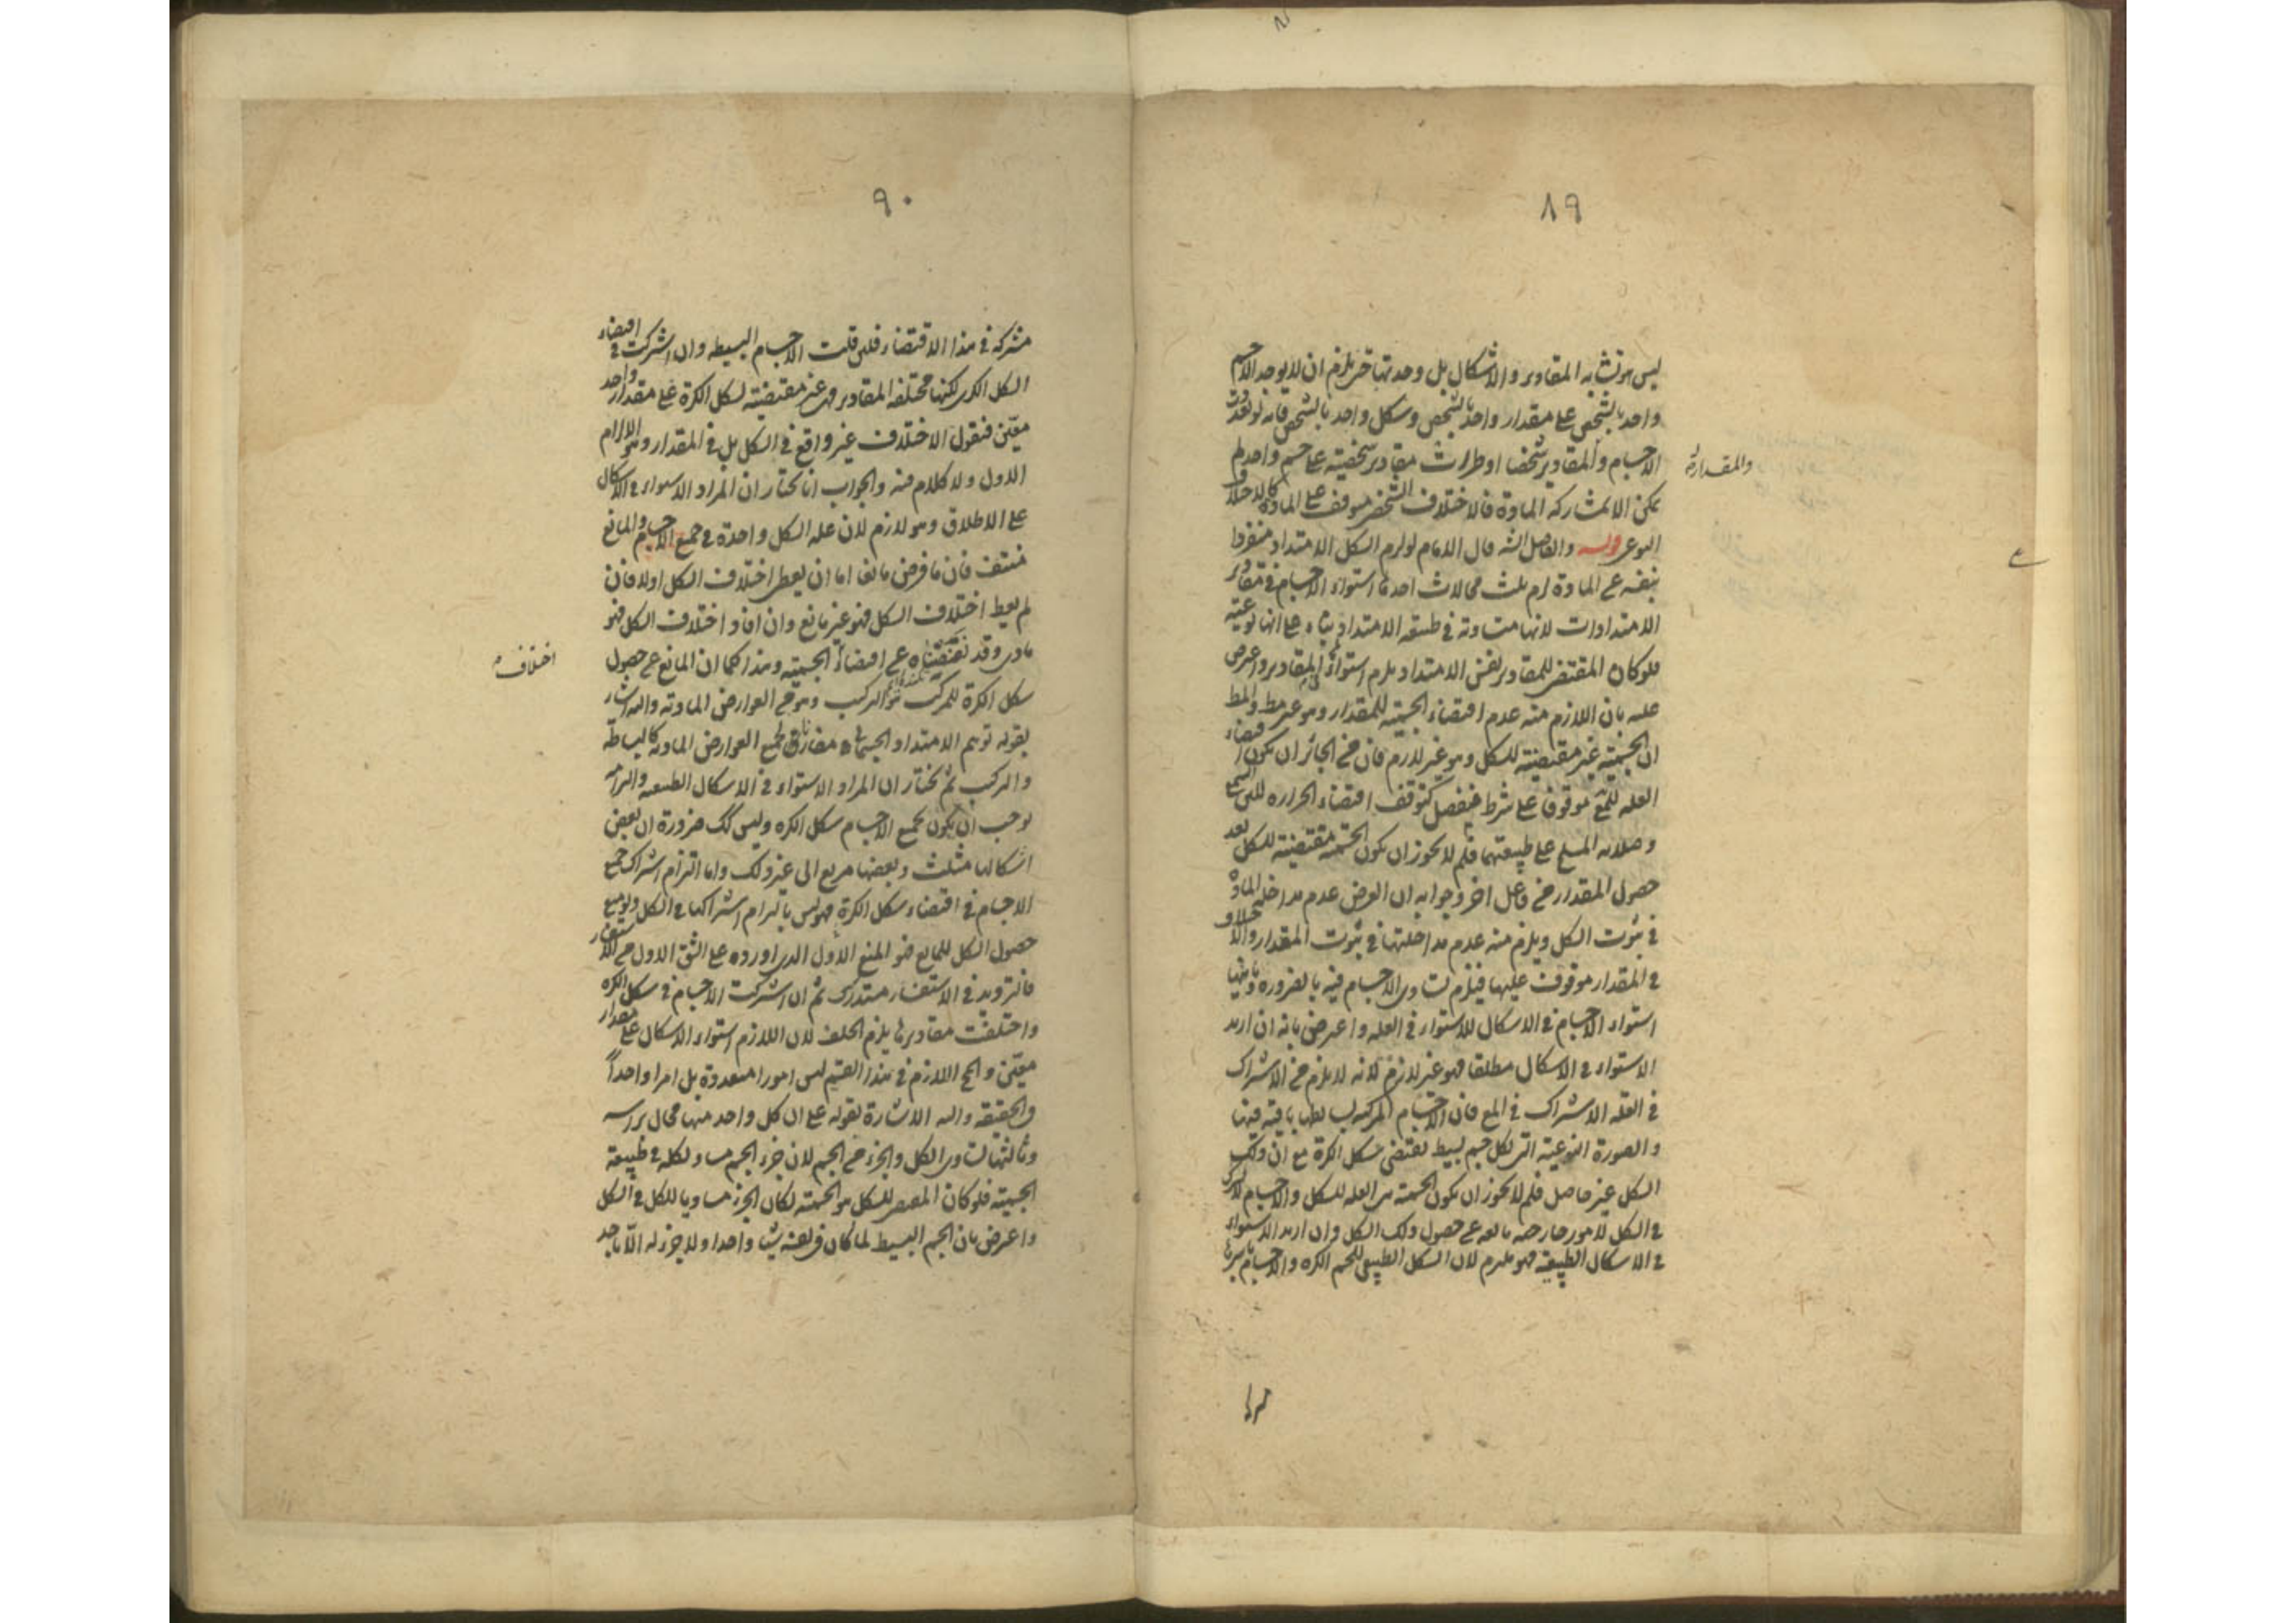 ٨٩
ليس هو تشابه المقادير والاشكال بل وحدتها حتى يلزم ان لا يوجد الا جسم
واحد بالشخص على مقدار واحد بالشخص وشكل واحد بالشخص فانه لو تعددت
الاجسام والمقادير شخصا او طرات مقادير شخصية على جسم واحد لم
يمكن الا بمشاركة المادة فالاختلاف الشخصى موقوف على المادة كالاختلاف
والمقدارية
النوعى قوله والفاصل الشه قال الامام لو لزم الشكل الامتداد منفردا
بنفسه عن المادة لزم ثلث محالات احدها استواء الاجسام فى مقادير
الامتدادات لانها متساوية فى طبيعة الامتداد بناء على انها نوعية
فلو كان المقتضى للمقادير نفس الامتداد يلزم استواء المقادير واعترض
عليه بان اللازم منه عدم اقتضاء الجسمية للمقدار وهو غير مط والمط
ان الجسمية غير مقتضية للشكل وهو غير لازم فان من الجائز ان يكون اقتضاء
العلة للشى موقوفا على شرط منفصل كتوقف اقتضاء الحرارة للين الشمع
وصلابة الملح على طبيعتهما فلم لا يجوز ان يكون الجسمية مقتضية للشكل بعد
حصول المقدار من فاعل اخر وجوابه ان الغرض عدم مداخلة المادة
فى ثبوت الشكل ويلزم منه عدم مداخلتها فى ثبوت المقدار والاختلاف
فى المقدار موقوف عليها فيلزم تساوى الاجسام فيه بالضرورة وثانيها
استواء الاجسام فى الاشكال للاستواء فى العلة واعترض بانه ان اريد
الاستواء فى الاشكال مطلقا فهو غير لازم لانه لا يلزم من الاشتراك
فى العلة الاشتراك فى المع فان الاجسام المركبة بسايطها باقية فيها
والصورة النوعية التى لكل جسم بسيط يقتضى شكل الكرة مع ان ذلك
الشكل غير حاصل فلم لا يجوز ان يكون الجسمية هى العلة للشكل والاجسام
فى الشكل لامور خارجة مانعة عن حصول ذلك الشكل وان اريد الاستواء
فى الاشكال الطبيعية فهو ملتزم لان الشكل الطبيعى للجسم الكرة والاجسام باسرها
٩٠
مشتركة فى هذا الاقتضاء فلئن قلت الاجسام البسيطة وان اشتركت فى اقتضاء
الشكل الكرى لكنها مختلفة المقادير فهى غير مقتضية لشكل الكرة على مقدار واحد
معين فنقول الاختلاف غير واقع فى الشكل بل فى المقدار وهو الالزام
الاول ولا كلام فيه والجواب انا نختار ان المراد الاستواء فى الاشكال
على الاطلاق وهو لازم لان علة الشكل واحدة فى جميع الاجسام والمانع
منتف فان ما فرض مانعا اما ان يعطى اختلاف الشكل او لا فان
لم يعط اختلاف الشكل فهو غير مانع وان افاد اختلاف الشكل فهو
مادى وقد نفيناه عن اقتضاء الجسمية وهذا كما ان المانع عن حصول
اختلاف
شكل الكرة للمركب هو التركيب وهو من العوارض المادية واليه اشار
بقوله توهم الامتداد الجسمانى مفارقا لجميع العوارض المادية كالبساطة
والتركيب ثم نختار ان المراد الاستواء فى الاشكال الطبيعية والتزامه
يوجب ان يكون لجميع الاجسام شكل الكرة وليس كك ضرورة ان بعض
اشكالها مثلث وبعضها مربع الى غير ذلك واما التزام اشتراك جميع
الاجسام فى اقتضاء شكل الكرة فهو ليس بالتزام اشتراكها فى الشكل ولو منع
حصول الشكل للمانع فهو المنع الاول الذى اورده على الشق الاول من الاستفسار
فالترديد فى الاستفسار مستدرك ثم ان اشتركت الاجسام فى شكل الكرة
واختلفت مقاديرها يلزم الخلف لان اللازم استواء الاشكال على مقدار
معين والمح اللازم فى هذا القسم ليس امورا متعددة بل امرا واحدا
فى الحقيقة واليه الاشارة بقوله على ان كل واحد منها محال براسه
وثالثها تساوى الكل والجزء من الجسم لان جزء الجسم مساو لكله فى طبيعة
الجسمية فلو كان المقتضى للشكل هو الجسمية لكان الجزء مساويا للكل فى الشكل
واعترض بان الجسم البسيط لما كان فى نفسه شيئا واحدا ولا جزء له الا باحد